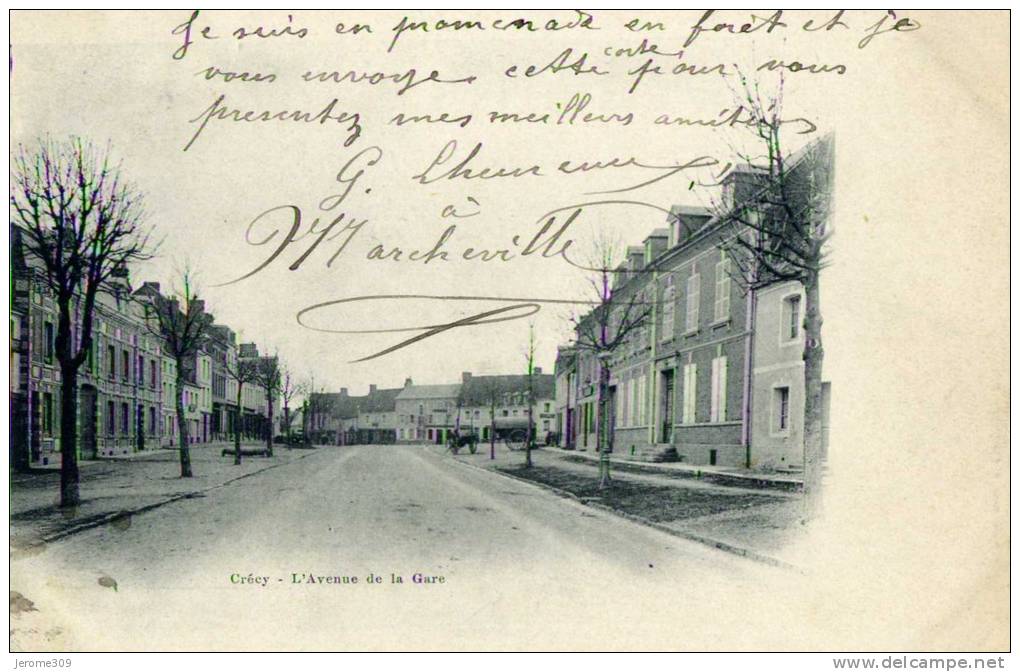 Je suis en promenade en forêt et je
vous envoye cette carte pour vous
presentez mes meilleurs amitiés
G.
à
Marcheville
Crécy - L'Avenue de la Gare
Jerome309
www.delcampe.net